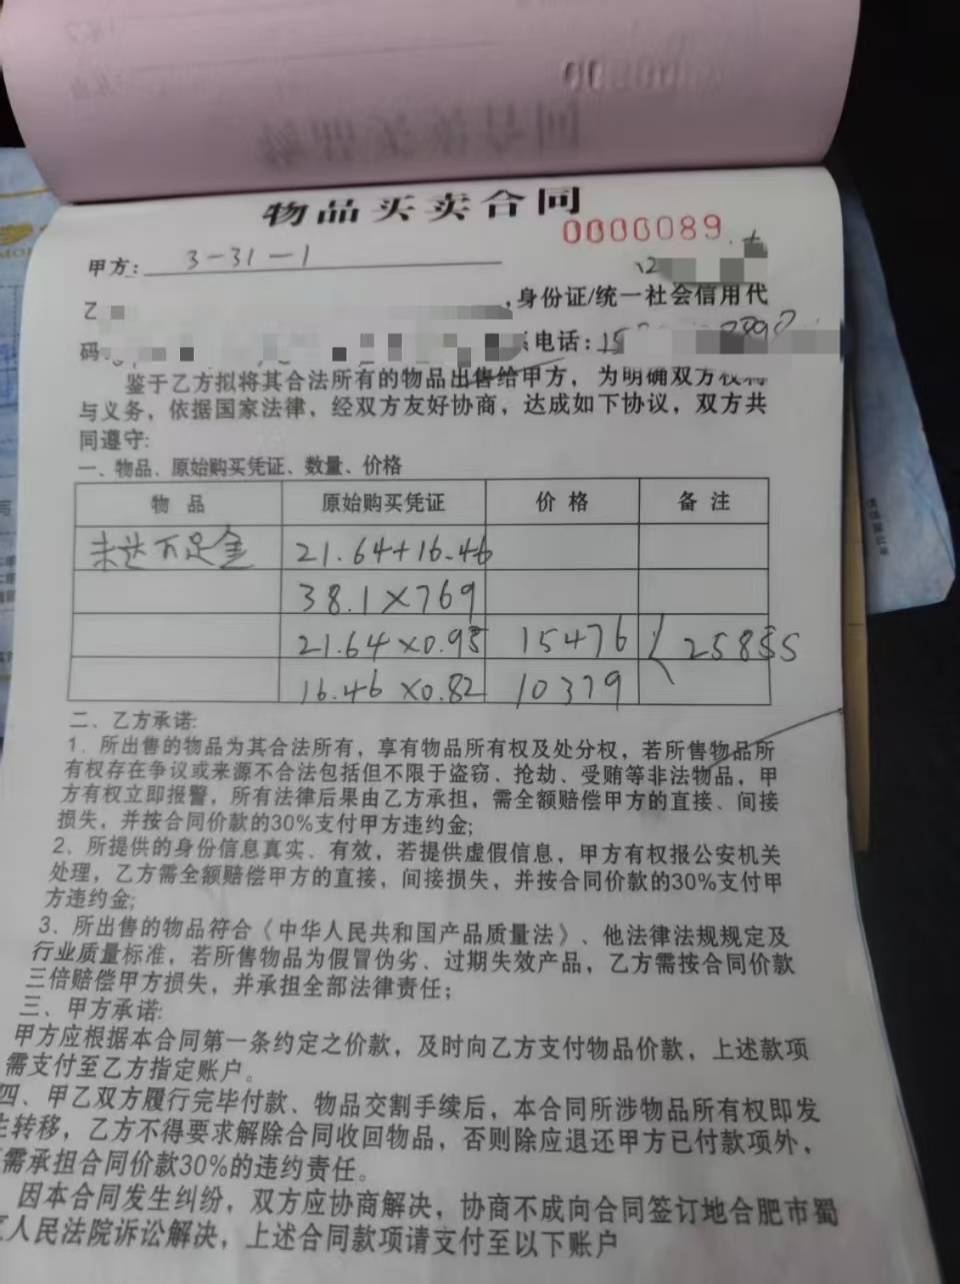 物品买卖合同
0000089
甲方: 3-31-1
乙
,身份证/统一社会信用代
码:
电话: 15
鉴于乙方拟将其合法所有的物品出售给甲方，为明确双方权利
与义务，依据国家法律，经双方友好协商，达成如下协议，双方共
同遵守:
一、物品、原始购买凭证、数量、价格
物 品 原始购买凭证 价 格 备 注
未达万足金 21.64+16.46
38.1×769
21.64×0.93 15476 25855
16.46×0.82 10379
二、乙方承诺:
1、所出售的物品为其合法所有，享有物品所有权及处分权，若所售物品所
有权存在争议或来源不合法包括但不限于盗窃、抢劫、受贿等非法物品，甲
方有权立即报警，所有法律后果由乙方承担，需全额赔偿甲方的直接、间接
损失，并按合同价款的30%支付甲方违约金;
2、所提供的身份信息真实、有效，若提供虚假信息，甲方有权报公安机关
处理，乙方需全额赔偿甲方的直接，间接损失，并按合同价款的30%支付甲
方违约金;
3、所出售的物品符合《中华人民共和国产品质量法》、他法律法规规定及
行业质量标准，若所售物品为假冒伪劣、过期失效产品，乙方需按合同价款
三倍赔偿甲方损失，并承担全部法律责任；
三、甲方承诺:
甲方应根据本合同第一条约定之价款，及时向乙方支付物品价款，上述款项
需支付至乙方指定账户。
四、甲乙双方履行完毕付款、物品交割手续后，本合同所涉物品所有权即发
生转移，乙方不得要求解除合同收回物品，否则除应退还甲方已付款项外，
需承担合同价款30%的违约责任。
因本合同发生纠纷，双方应协商解决，协商不成向合同签订地合肥市蜀
人民法院诉讼解决，上述合同款项请支付至以下账户